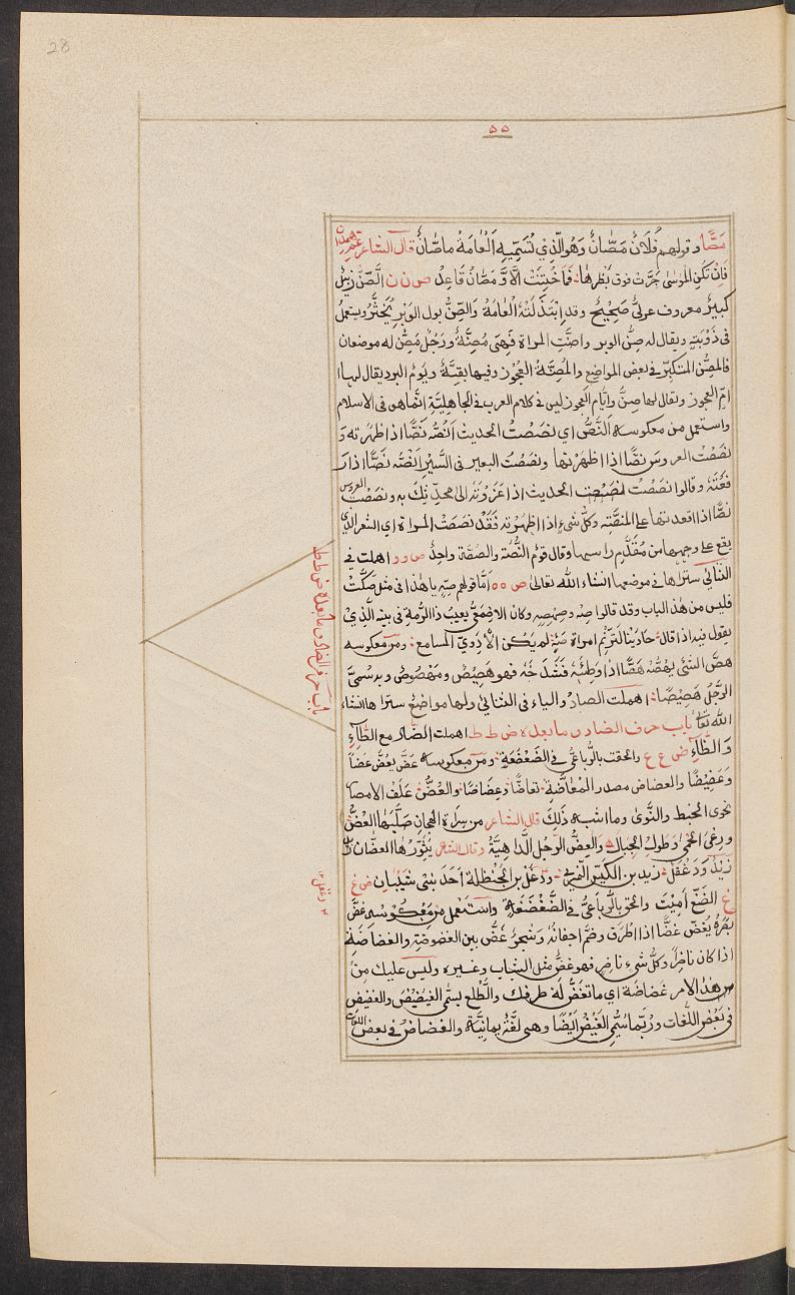 28
٥٥
مَصًّا وقولهم فُلَانٌ مَصَّانٌ وَهُو الَّذِي تُسَمِّيهِ الْعَامَةُ ماصَّانٌ قال الشاعر
فَاِنْ تَكُنِ المُوسَى جَرَتْ فوق بَظْرِهَا فَمَا خُتِنَتْ اِلَّا وَمَصَّانُ قَاعِدُ ص ن ن الصِّنُّ زبيل
كبيرٌ معروف عربيٌّ صَحِيحٌ وقد ابتَذَلَتْهُ الْعَامَةُ والصِّنُّ بول الوَبْرِ يُخَثَّرُ ويستعملُ
فى ويقال له صِنُّ الوبر واصنَّتِ المراة فَهِىَ مُصِنَّةٌ ورَجُلٌ مُصِنٌّ له موضعان
فالمصِنُّ المتكبّر فى بعض المواضِع والمُصِنَّةُ العَجُوز وفيها بقيَّةٌ ويَوْم البرد يقال لها
امّ العجوز ويقال لها صِنٌّ وايَّام العجوز ليس فى كلام العرب فى الجاهليَّةِ انَّما هى فى الاسلام
واستعمل من معكوسه النَّصُّ اى نصَصْتُ الحديث اَنُصُّه نَصًّا اذا اظهرته وَ
نصَصْت العروسَ نصًّا اذا اظهرتها ونصَصْت البعير فى السَّيْرِ اَنُصُّه نَصًّا اذا رَ
فعْتَهُ وقالوا نصَصْتُ الحديث اذا عَزَوْتَهُ الى مُحدِّثِكَ به ونصَصْتُ العروس
نصًّا اذا اقعدتها على المنصَّة وكلّ شىء اذا اظهرته فقَدْ نصَصْتَه المراة اى الشعر الذى
يقع على وجهها من مُقَدَّم راسها وقال قوم النُّصَة والصَّة واحدٌ ص و و اهملت فى
الثنائى ستراها فى موضعها انشاء الله تعالى ص ه ه امَّا قولهم صهٍ ياهذا فى مثل سَكِّتْ
فليس من هذا الباب وقد قالوا صَه وصهصه وكان الاصمعىُّ يعيبُ ذا الرُّمة فى بيته الَّذِىْ
يقول فيه اذا قال حَادِيْنا لترنّم امراة صَهٍ لم يكن الَّا دَوِىَّ المسامع ومن معكوسه
هصَّ الشئ يهُصّه هَصًّا اذا وطئه فشَدَخَهُ فهو هَصِيْص ومَهْصُوص وبه سُمِىَّ
الرَّجُلُ هَصِيصًا اهملت الصادُ والياء فى الثنائى ولها مواضع ستراها انشاء
الله تعا باب حرف الضاد وما بعده ض ط ط اهملت الضَّاد مع الطَّاءِ
وَالظَّاءِ ض ع ع والحقت بالرُّباعىِّ فى الضَعْضَعَة ومن معكوسه عَضَّ يَعُضُّ عَضًّا
وَعَضِيْضًا والعضاض مصدر المُعَاضَّةِ تعاضَّا وعِضَاضًا والعُضُّ عَلَفُ الامصا
نحوى الخبط والنَّوى وما اشبه ذٰلِكَ قال الشاعر من سَراةِ الهجان صَلَّبَهَا العُضُّ
ورعْىُ الحمَى وَطولُ الحِيال والعِضُّ الرّجل الدَّاهِيَةُ وقال الشعر يُثَوِّرُها العضَّان
زيدٌ وَدَغْفَل زيد بن الكَيِّس النمرى وَدَغْفَل بن حَنْظلة اَحَدُ بنى شَيْبَان ض غ
غ الضَغّ اُمِيْتَ والحق بالرّباعىِّ فى الضَّغْضَغَة واستعمل من معكوسه غضَّ
بصَرَهُ يَغُضّ غضًّا اذا اطرق وضَمَّ اجفانَه وشجرٌ غَضٌّ بيّن الغضوضة والغضاضَة
اذا كان ناضرً وكلّ شىء ناضر فهو غضٌّ مثل الشباب وغيره وليس عليك مِنْ
من هذا الامر غضاضة اى ما تغضّ له طرفك والطَّلع يسمّى الغيضِيْض والغضيض
فى بَعْض اللُّغات ورُبّما سُمّى الغَيْض اَيْضًا وهى لُغَةٌ يمانِيَّة والغضاضُ فى بعض اللغات
باب حرف الضاد وما بعده ض ط ط